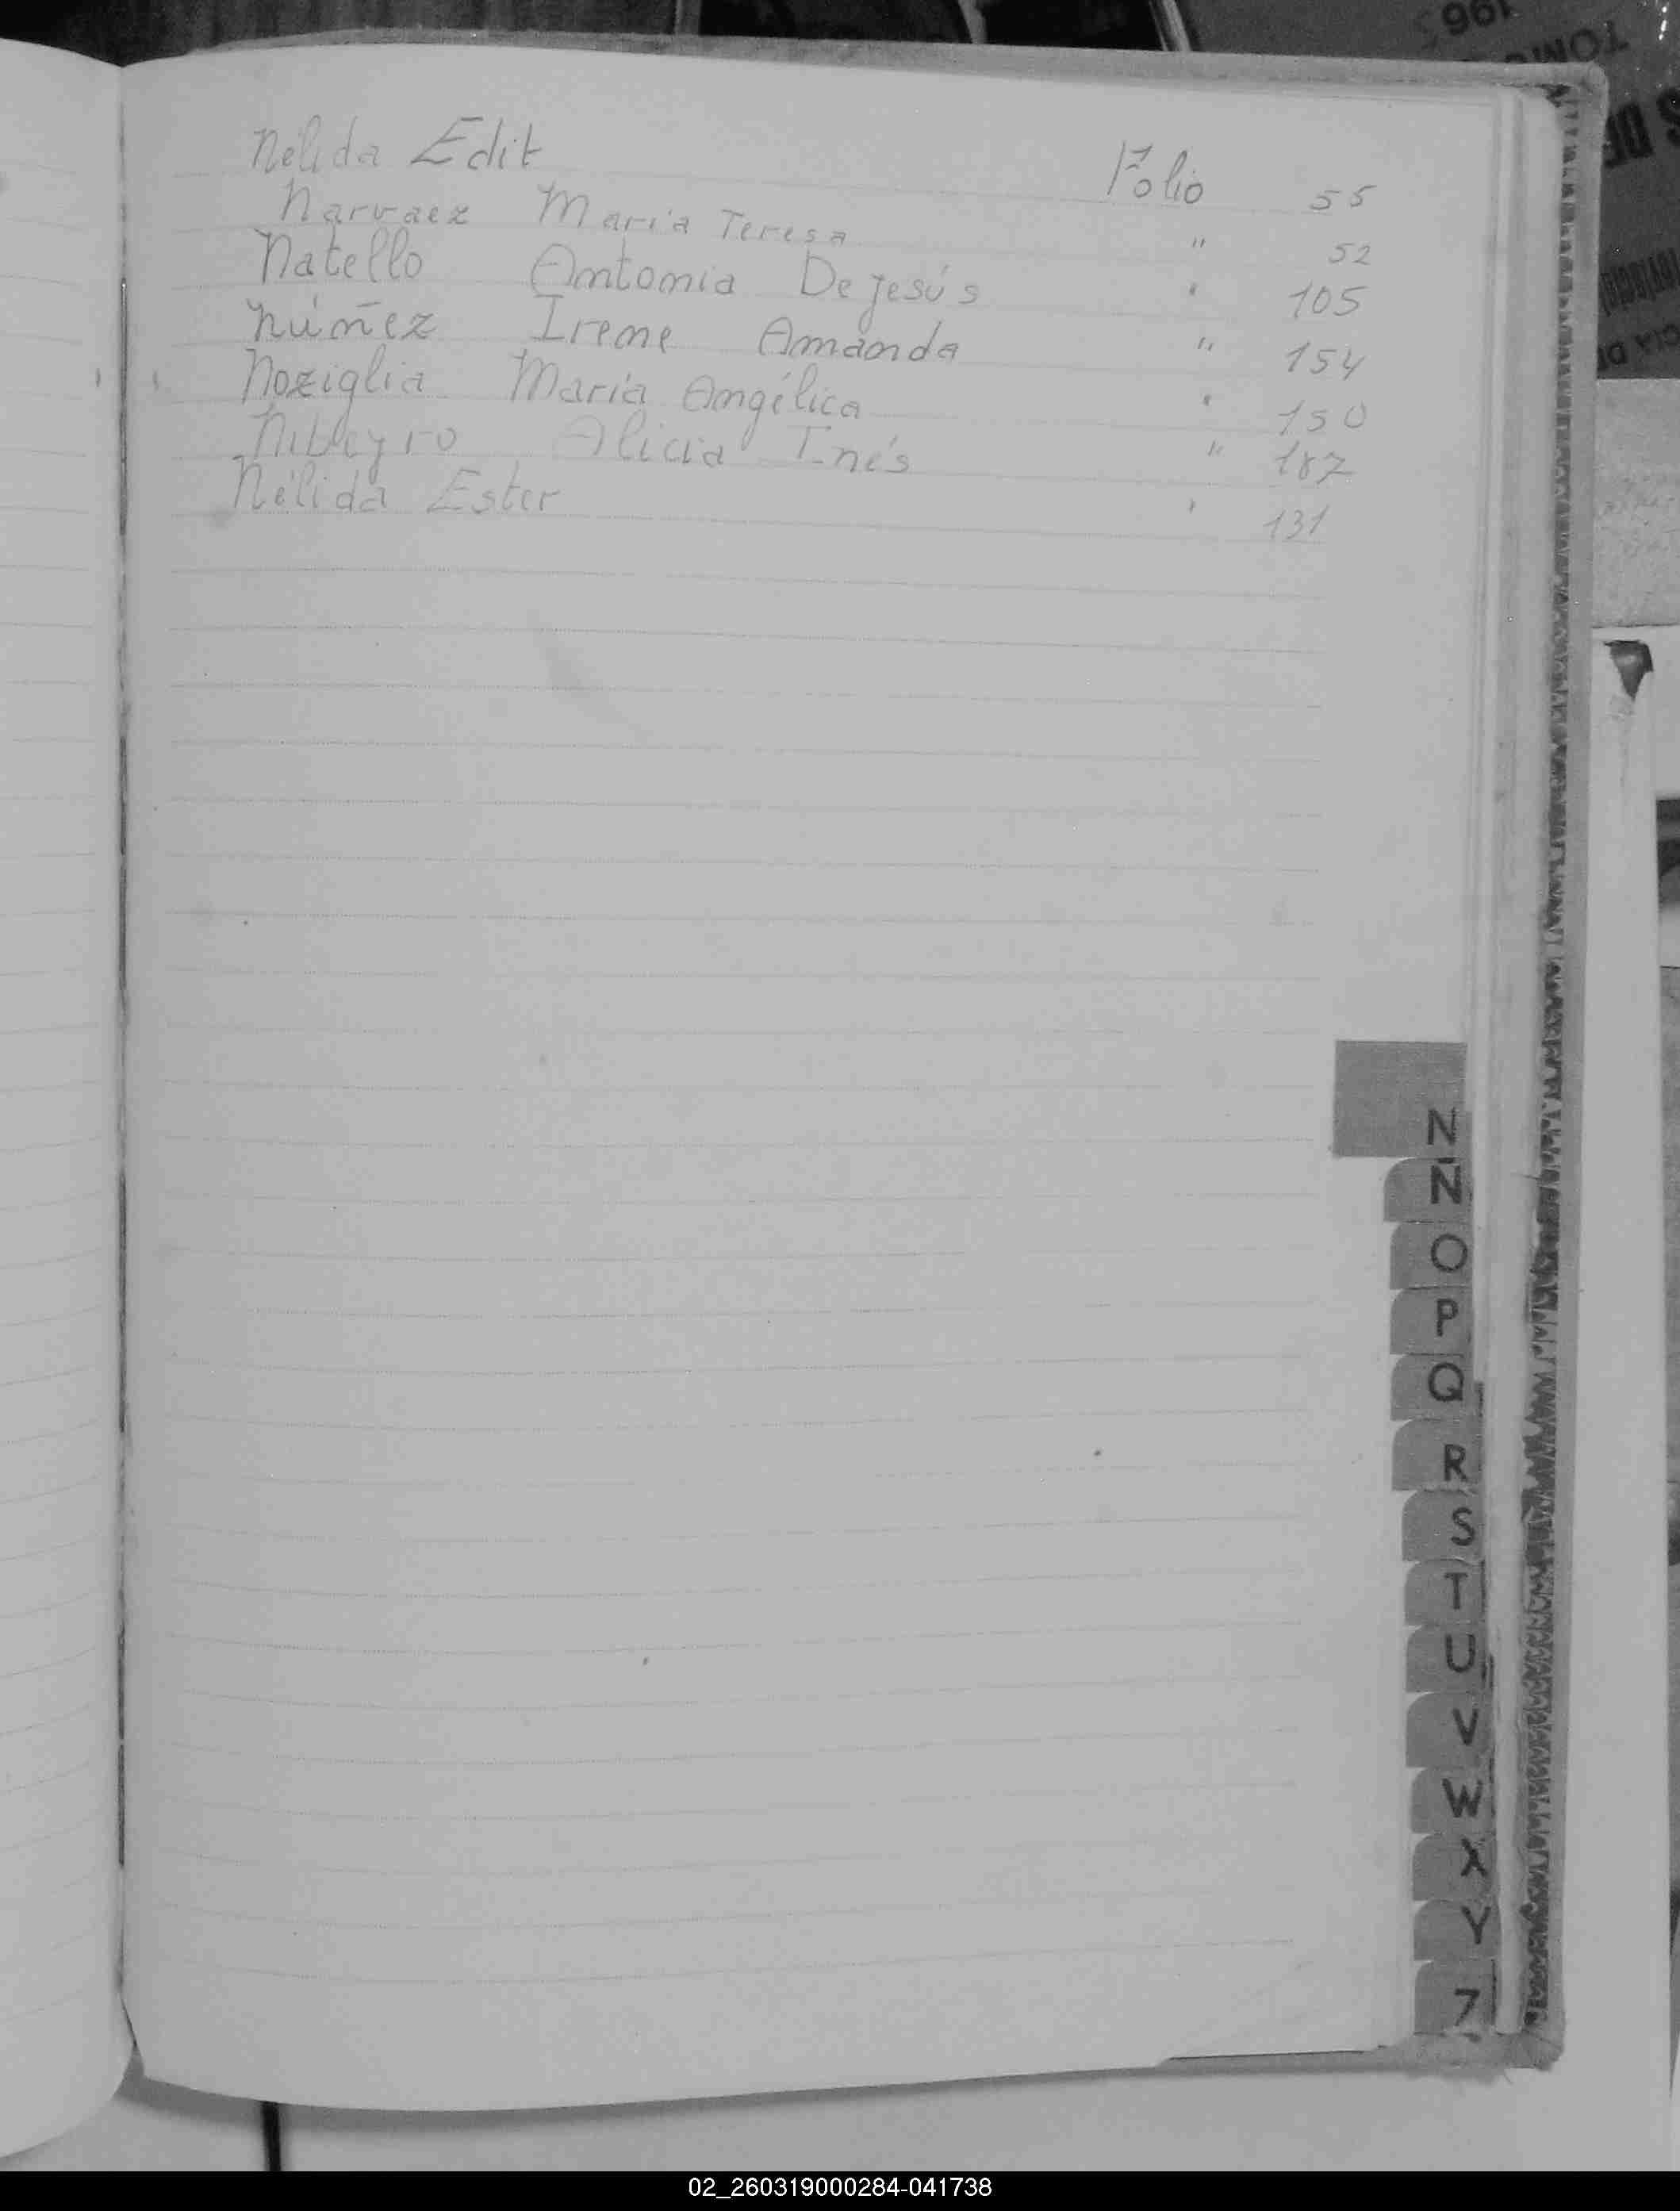 Nélida Edit Folio 55
Narvaez María Teresa " 52
Natello Antonia De jesús " 105
Núñez Irene Amanda " 154
Noziglia María Angélica " 150
Nibeyro Alicia Inés " 187
Nélida Ester " 131
N
Ñ
O
P
Q
R
S
T
U
V
W
X
Y
Z
02_260319000284-041738